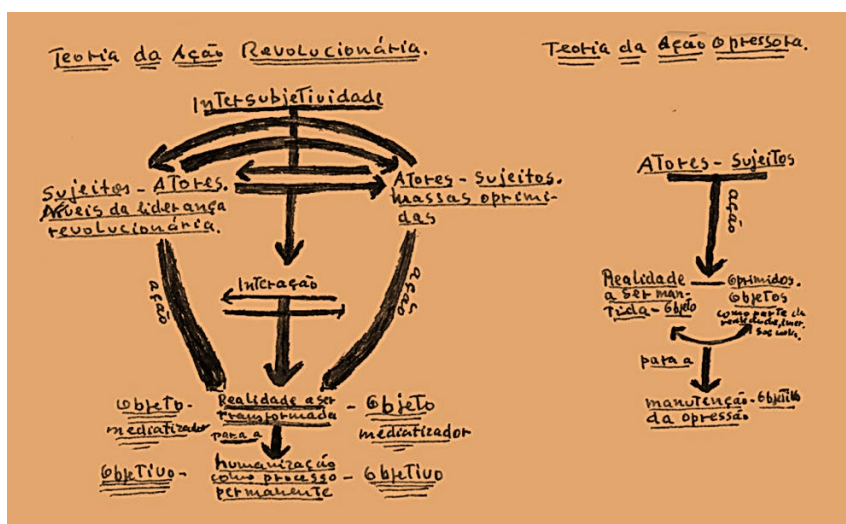 Teoria da Ação Revolucionária.
Intersubjetividade
Sujeitos - Atores.
Níveis da liderança
revolucionária.
Atores - Sujeitos.
massas oprimi-
das
ação
Interação
ação
Objeto-
mediatizador
Realidade a ser
transformada
para a
- Objeto
mediatizador
Objetivo-
humanização
como processo
permanente
- Objetivo
Teoria da Ação Opressora.
Atores - Sujeitos
ação
Realidade
a ser man-
tida - Objeto
Oprimidos.
Objetos
como parte da
realidade
para a
manutenção - Objetivo
da opressão